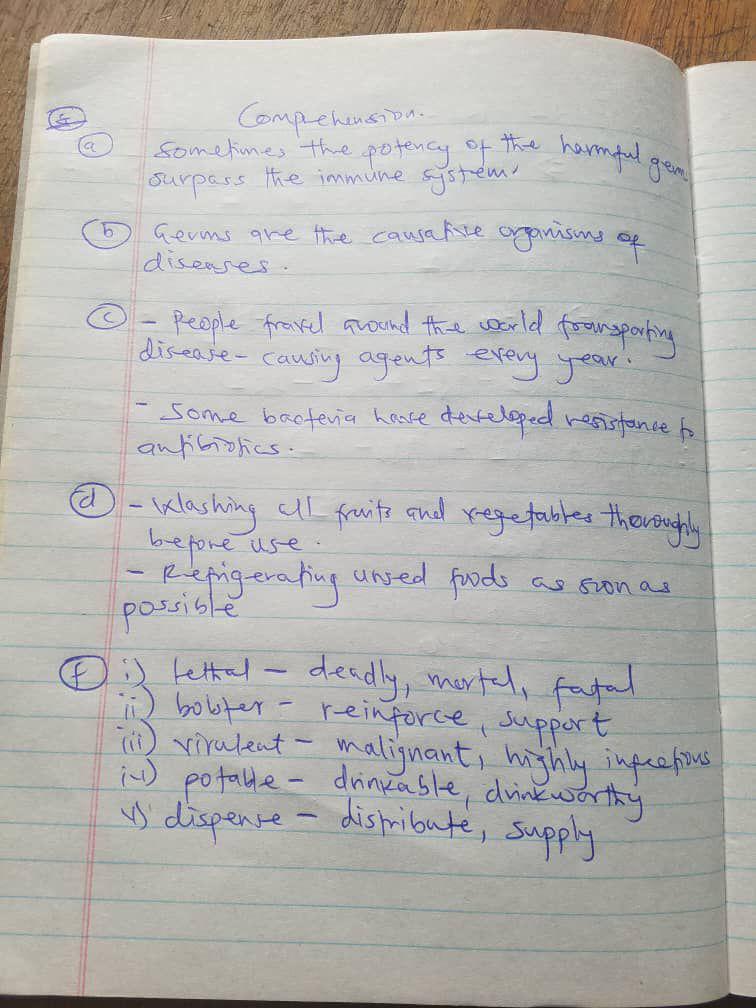 Comprehension.
a Sometimes the potency of the harmful germ
surpass the immune system.
b Germs are the causative organisms of
diseases.
c - People travel around the world transporting
disease - causing agents every year.
- Some bacteria have developed resistance to
antibiotics.
d - Washing all fruits and vegetables thoroughly
before use.
- Refrigerating unsed foods as soon as
possible
f i) lethal - deadly, mortal, fatal
ii) bolster - reinforce, support
iii) virulent - malignant, highly infectious
iv) potable - drinkable, drinkworthy
v) dispense - distribute, supply